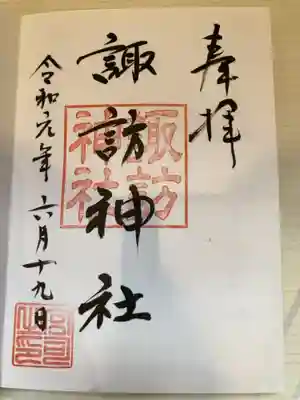 奉拝
諏訪神社
諏訪神社
令和元年六月十九日